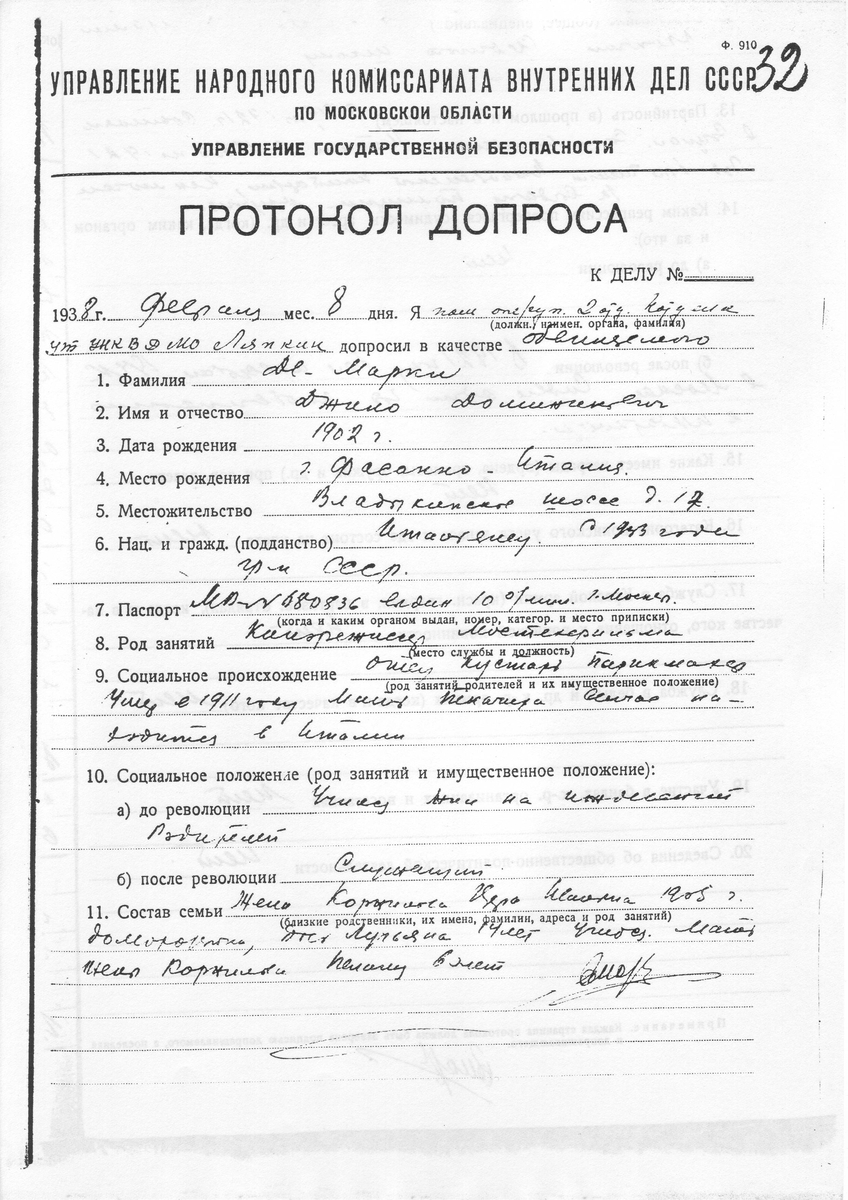 Ф. 910
32
УПРАВЛЕНИЕ НАРОДНОГО КОМИССАРИАТА ВНУТРЕННИХ ДЕЛ СССР
ПО МОСКОВСКОЙ ОБЛАСТИ
УПРАВЛЕНИЕ ГОСУДАРСТВЕННОЙ БЕЗОПАСНОСТИ
ПРОТОКОЛ ДОПРОСА
К ДЕЛУ №
1938 г. Февраля мес. 8 дня. Я пом опер/уп. 2 отд.
(должн., наимен. органа, фамилия)
НКВД МО Ляпкин допросил в качестве обвиняемого
1. Фамилия Де-Марки
2. Имя и отчество Джино Доминикович
3. Дата рождения 1902 г.
4. Место рождения г. Фасанно - Италия.
5. Местожительство Владыкинское шоссе д. 17.
6. Нац. и гражд. (подданство) Итальянец. С 1933 года
гр-н СССР.
7. Паспорт № 680836 выдан 10 о/мил. г. Москвы.
(когда и каким органом выдан, номер, категор. и место приписки)
8. Род занятий Кинорежиссер Мостехфильма
(место службы и должность)
9. Социальное происхождение отец кустарь парикмахер
(род занятий родителей и их имущественное положение)
Умер в 1911 году Мать Сейчас на-
ходится в Италии
10. Социальное положение (род занятий и имущественное положение):
а) до революции Учился жил на иждивении
Родителей
б) после революции Служащий
11. Состав семьи Жена 1905 г.
(близкие родственники, их имена, фамилии, адреса и род занятий)
домохозяйка, дочь Лучьяна 14 лет Учится. Мать
жены